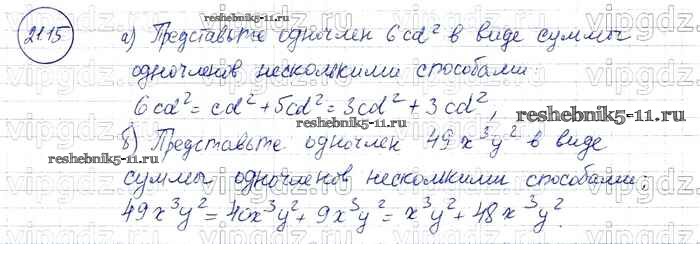 21.15
а) Представьте одночлен 6cd² в виде суммы
одночленов несколкими способами:
6cd² = cd² + 5cd² = 3cd² + 3cd²,
б) Представьте одночлен 49x³y² в виде
суммы одночленов несколкими способами;
49x³y² = 40x³y² + 9x³y² = x³y² + 48x³y².
reshebnik5-11.ru
reshebnik5-11.ru
reshebnik5-11.ru
reshebnik5-11.ru
vipgdz.com